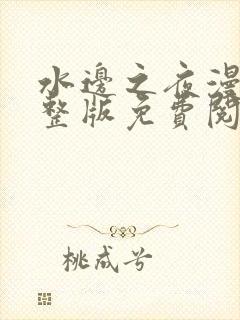 水邊之夜漫
整版免費閱
桃成兮